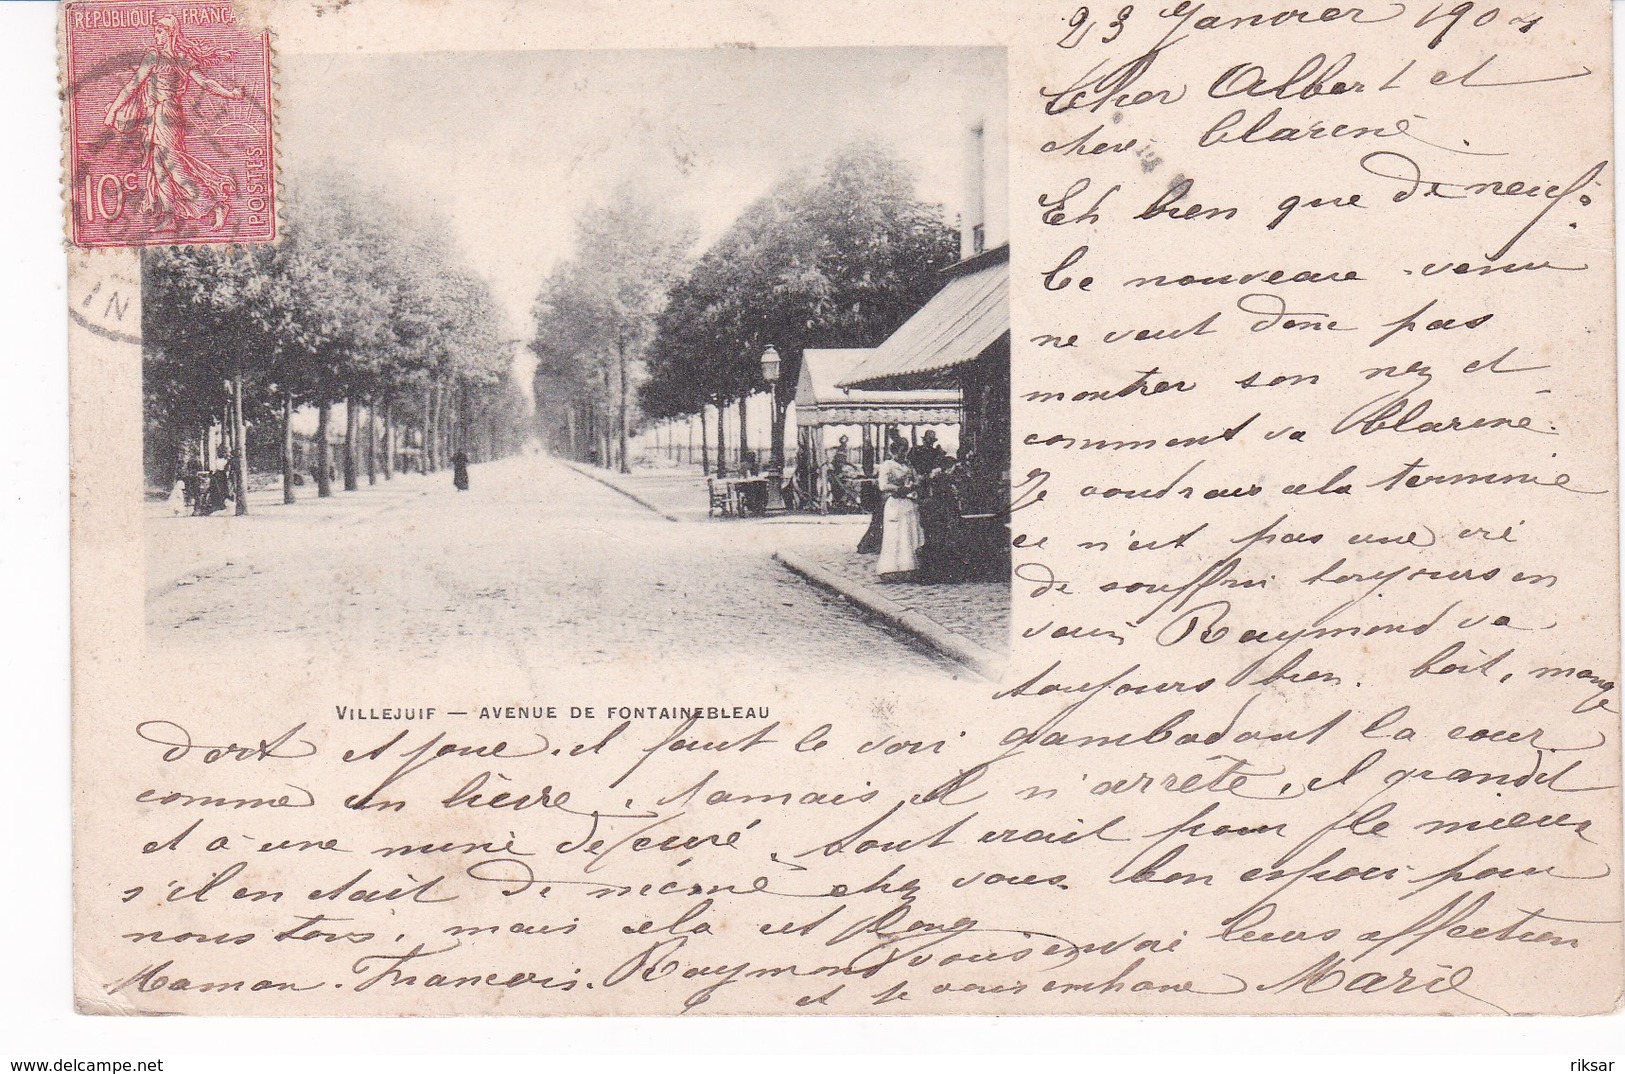 RÉPUBLIQUE FRANCA
10c
POSTES
23 Janvier 1904
Cher Albert et
chere Clarene.
Eh bien que de neuf?
Ce nouveau venu
ne veut donc pas
montrer son nez et
comment va Clarene.
Je voudrais cela terminé
ce n'est pas une vie
de souffrir toujours en
vain Raymond va
toujours bien. boit, mange
VILLEJUIF — AVENUE DE FONTAINEBLEAU
dort et joue, il faut le voir gambadant la cour
comme un lièvre, Jamais il n'arrête, il grandit
et a une mine de curé, tout irait pour le mieux
s'il en était de même chez vous. bon espoir pour
nous tous, mais cela est long
Maman. François. Raymond vous envoi leurs affection
et je vous embrasse Marie
delcampe.net
riksar